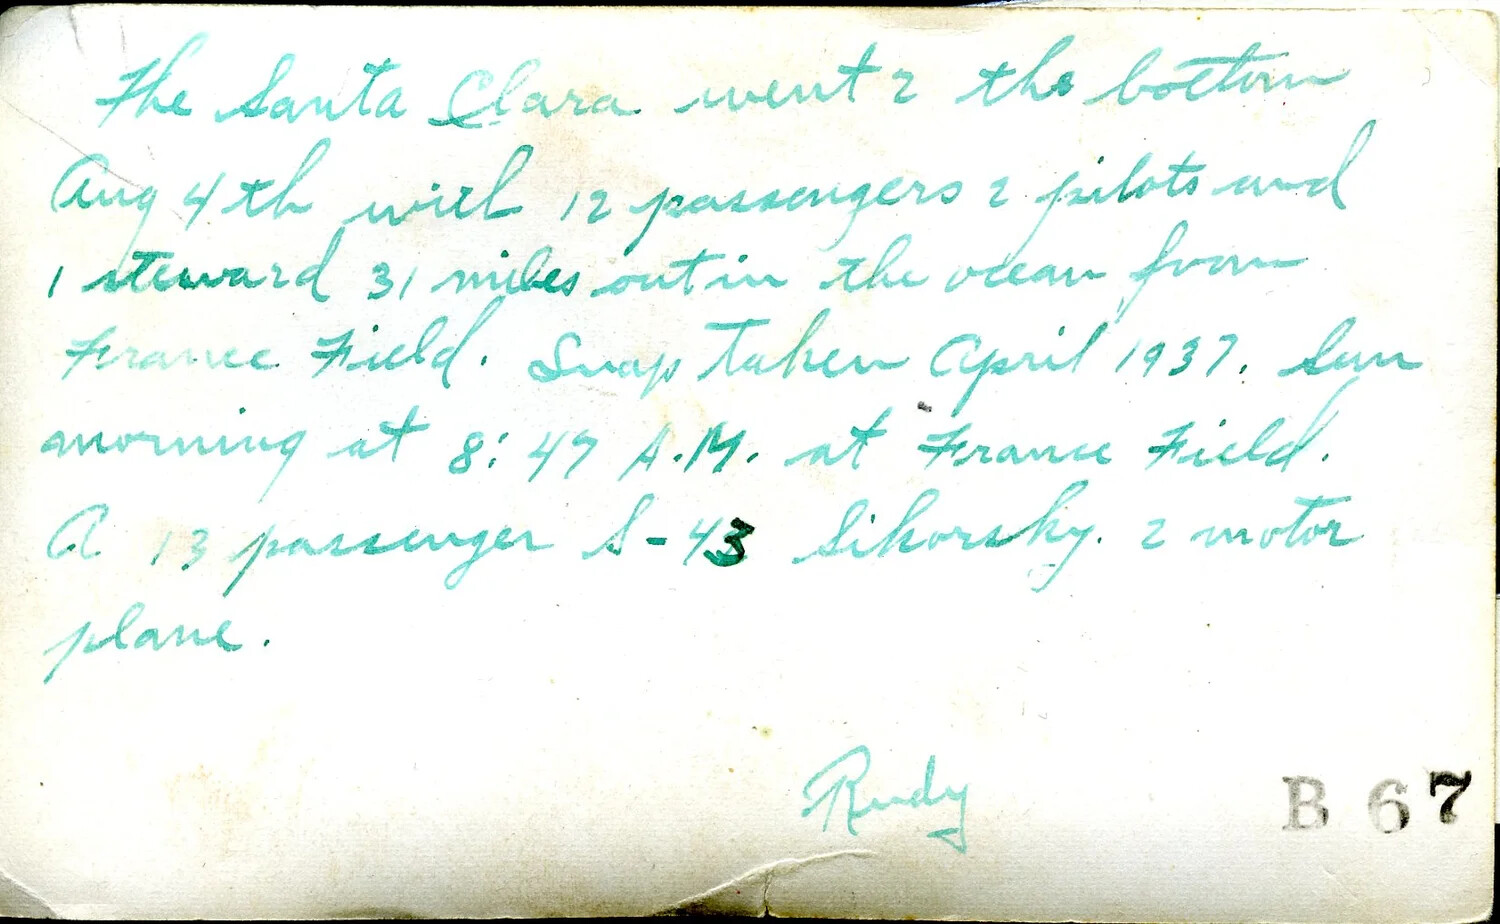 The Santa Clara went 2 the bottom
Aug 4th with 12 passengers 2 pilots and
1 steward 31 miles out in the ocean from
France Field. Snap taken April 1937. Sun
morning at 8:47 A.M. at France Field.
A 13 passenger S-43 Sikorsky. 2 motor
plane.
Rudy
B 67